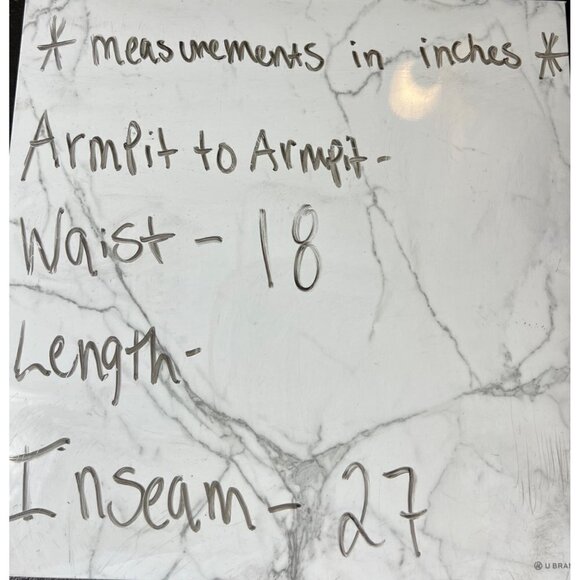 * measurements in inches *
Armpit to Armpit-
Waist - 18
Length-
Inseam - 27
U BRA